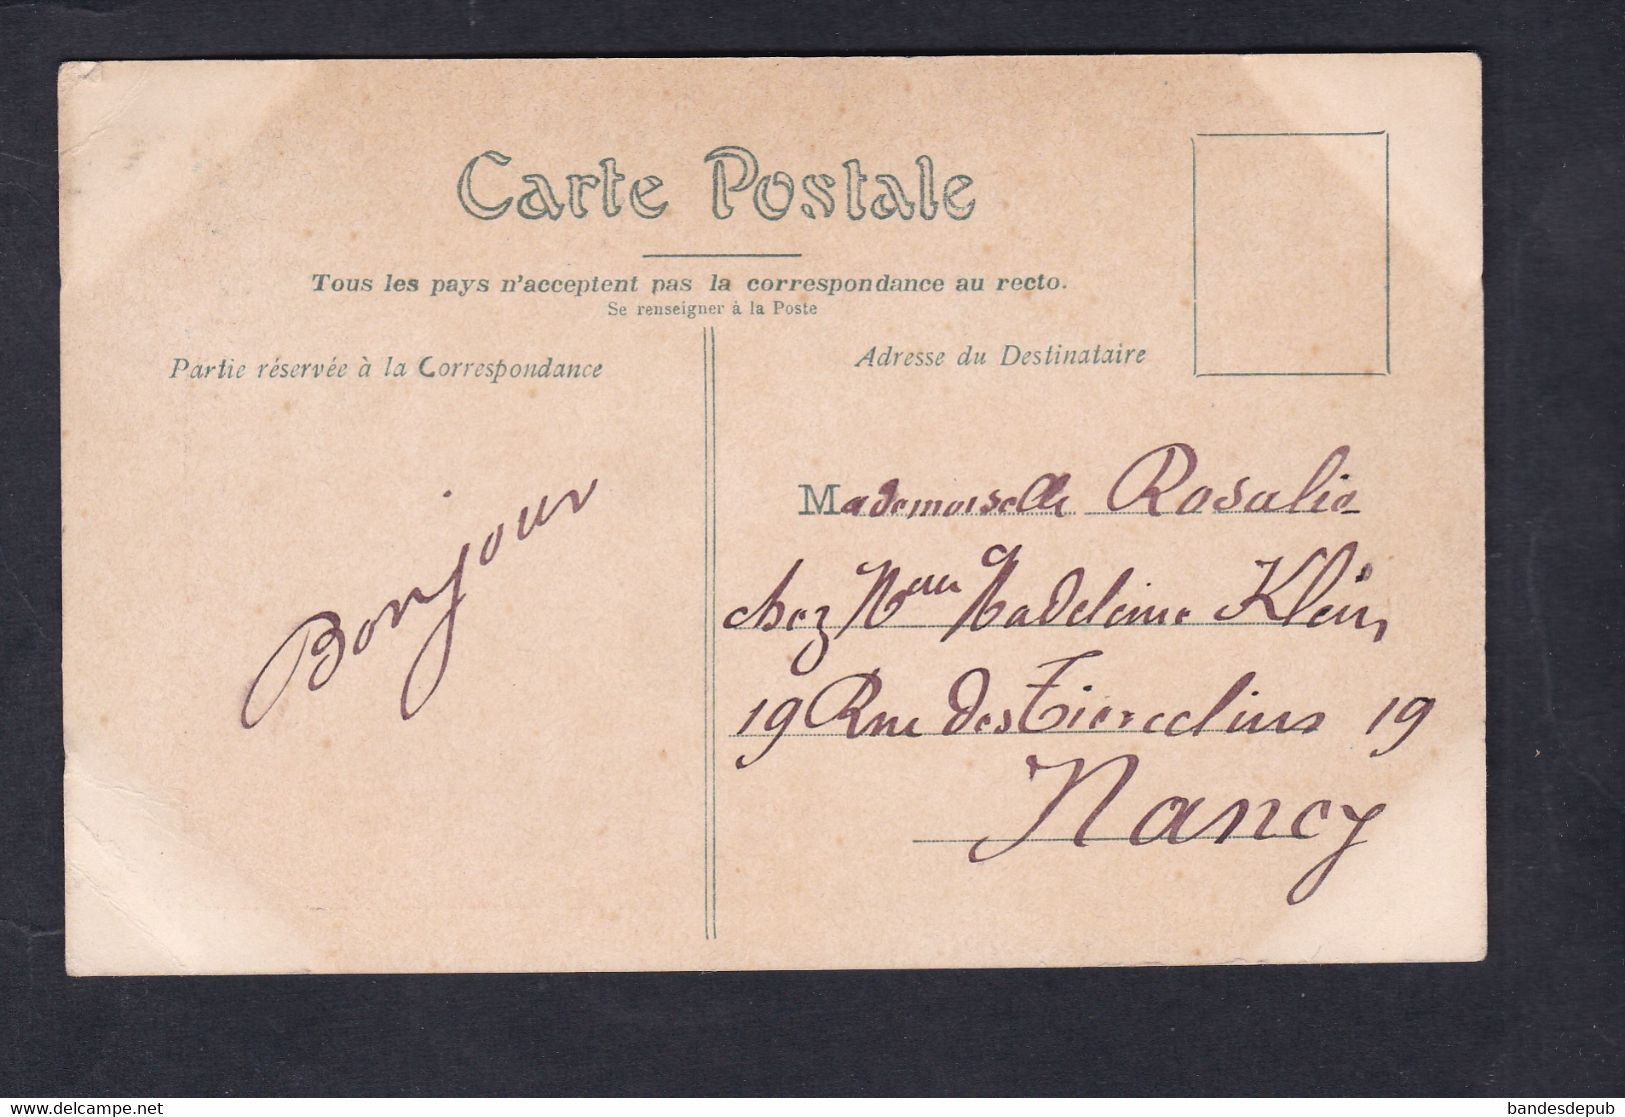 Carte Postale
Tous les pays n'acceptent pas la correspondance au recto.
Se renseigner à la Poste
Partie réservée à la Correspondance
Adresse du Destinataire
Bonjour
Mademoiselle Rosalie
chez Mme Madeleine Klein
19 Rue des Tiercelins 19
Nancy
delcampe.net
bandesdepub